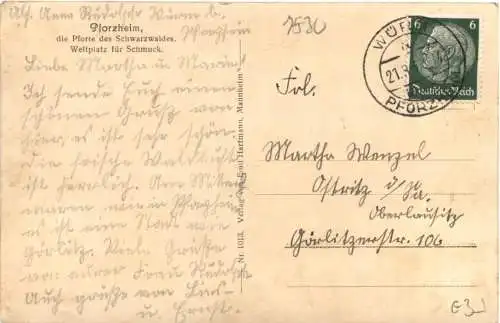 Abs. Anna Rudolph Würm b.
Pforzheim
Pforzheim,
die Pforte des Schwarzwaldes.
Weltplatz für Schmuck.
Liebe Martha u.
Ich sende Euch einen
schönen Gruß von
hier, es ist sehr schön.
Die frische Waldluft
ist herrlich. Am
waren wir in Pforzheim
es ist eine Stadt wie
Görlitz. Viele Grüße
von eurer Frau Rudolph
Auch Grüße von
u.
Nr. 1013. Verlag von Emil Hartmann, Mannheim
7530
WÜRM
21.8.
PFORZH
6 6
Deutsches Reich
Frl.
Martha Wenzel
Ostritz d/Sa.
Oberlausitz
Görlitzerstr. 106